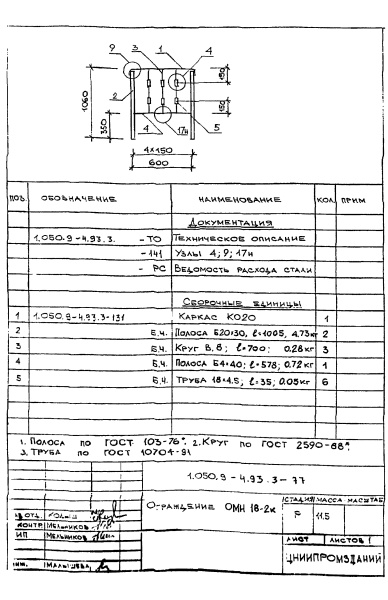 9 3 1 4
1060
2
350
150
150
4 17н 5
4×150
600
ПОЗ. ОБОЗНАЧЕНИЕ НАИМЕНОВАНИЕ КОЛ ПРИМ
ДОКУМЕНТАЦИЯ
1.050.9-4.93.3. -ТО ТЕХНИЧЕСКОЕ ОПИСАНИЕ
-141 УЗЛЫ 4; 9; 17н
- РС ВЕДОМОСТЬ РАСХОДА СТАЛИ
СБОРОЧНЫЕ ЕДИНИЦЫ
1 1.050.9-4.93.3-131 КАРКАС КО20 1
2 Б.Ч. ПОЛОСА Б20×30, ℓ=1005, 4.73кг 2
3 Б.Ч. КРУГ В.8; ℓ=700; 0.28кг 3
4 Б.Ч. ПОЛОСА Б4×40; ℓ=578; 0.72кг 1
5 Б.Ч. ТРУБА 18×4.5; ℓ=35; 0.05кг 6
1. ПОЛОСА ПО ГОСТ 103-76*. 2. КРУГ ПО ГОСТ 2590-88*.
3. ТРУБА ПО ГОСТ 10704-91
1.050.9-4.93.3-77
ОГРАЖДЕНИЕ ОМН 18-2к
СТАДИЯ МАССА МАСШТАБ
Р 11.5
КОНТР МЕЛЬНИКОВ
ИП МЕЛЬНИКОВ
ЛИСТ ЛИСТОВ 1
ЦНИИПРОМЗДАНИЙ
ИНЖ. МАЛЫШЕВА